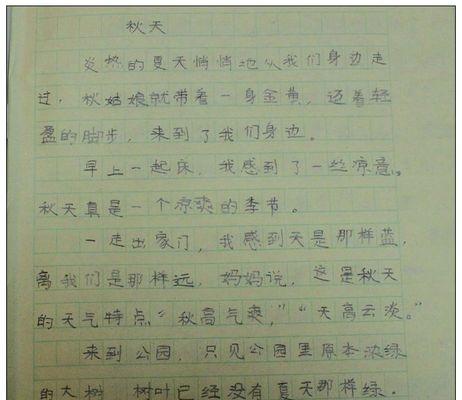 秋天
炎热的夏天悄悄地从我们身边走
过，秋姑娘就带着一身金黄，迈着轻
盈的脚步，来到了我们身边。
早上一起床，我感到了一丝凉意。
秋天真是一个凉爽的季节。
一走出家门，我感到天是那样蓝，
离我们是那样远，妈妈说，这是秋天
的天气特点“秋高气爽，”“天高云淡。”
来到公园，只见公园里原本浓绿
的大树，树叶已经没有夏天那样绿.